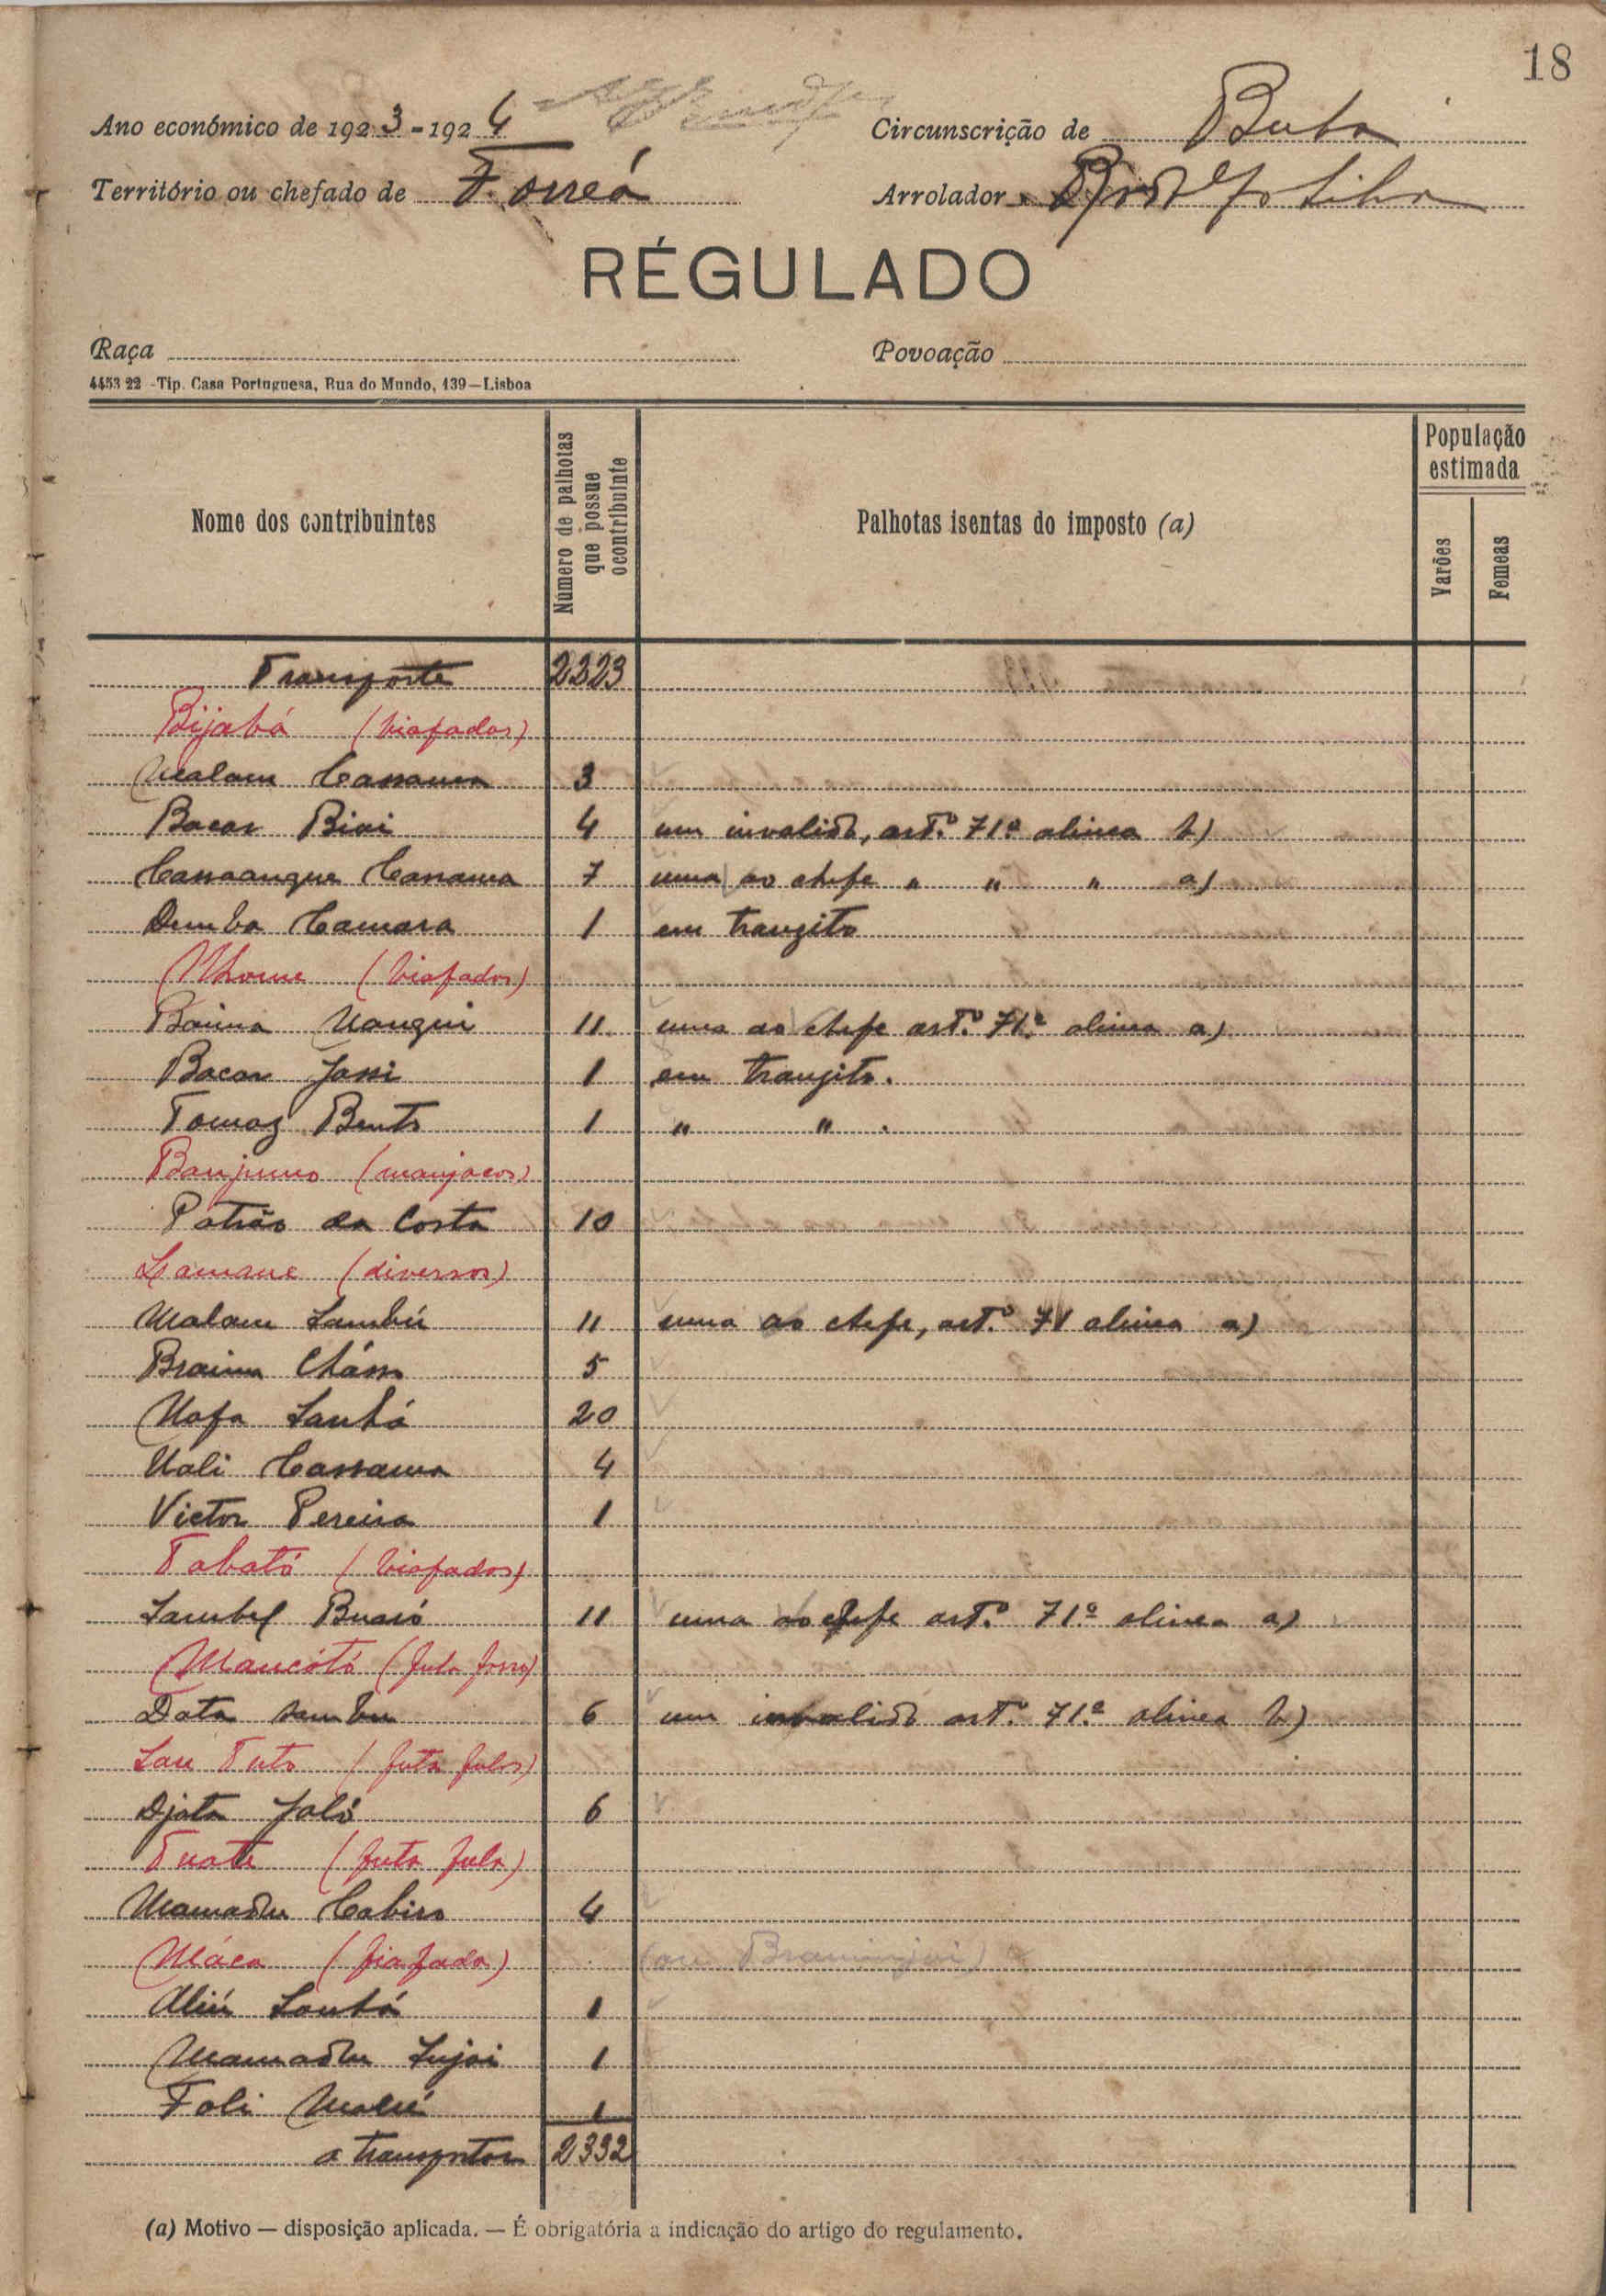 18
Ano económico de 1923-1924
Circunscrição de Buba
Território ou chefado de Forreá
Arrolador
RÉGULADO
Raça
Povoação
4453 22 - Tip. Casa Portuguesa, Rua do Mundo, 139—Lisboa
Nome dos contribuintes
Número de palhotas que possue o contribuinte
Palhotas isentas do imposto (a)
População estimada
Varões
Femeas
Transporte 2223
Bijabá (biafadas)
Malam Cassama 3
Bacar Biai 4 um invalido, artº 71º alinea b)
Cassangue Cassama 7 uma ao chefe " " " a)
Demba Camara 1 em tranzito
Nhome (biafados)
Baima Nanqui 11 uma ao chefe artº 71º alinea a)
Bacar Jassi 1 em tranzito.
Tomaz Bento 1 " " .
Banjuno (manjacos)
Patrão da Costa 10
Samane (diversos)
Malam Sambú 11 uma ao chefe, artº 71 alinea a)
Braima 5
Nafa Sanhá 20
Uali Cassama 4
Victor Pereira 1
Tabató (biafadas)
Sambel 11 uma ao chefe artº 71º alinea a)
Mancótó (fula forro)
Data Sambu 6 um invalido artº 71º alinea b)
San Tuto (futa fulos)
Djata Jaló 6
Tuate (futa fula)
Mamadu Cabiro 4
Máca (biafada) (ou
Aliú Sanhá 1
Mamadu 1
Fali 1
a transportar 2332
(a) Motivo — disposição aplicada. — É obrigatória a indicação do artigo do regulamento.